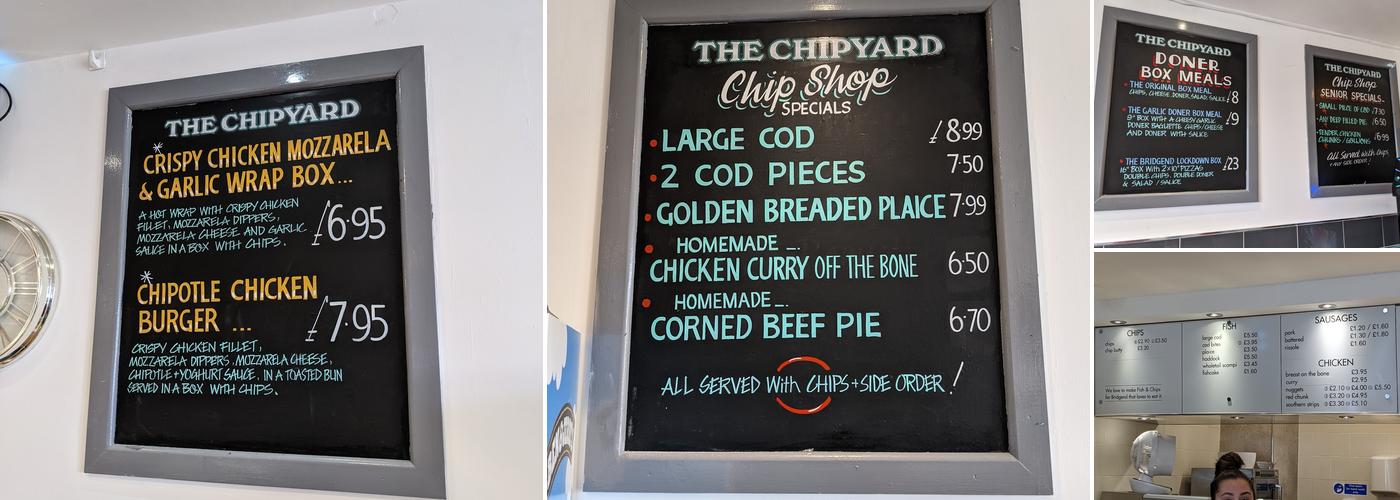 THE CHIPYARD
CRISPY CHICKEN MOZZARELA
& GARLIC WRAP BOX...
A HOT WRAP WITH CRISPY CHICKEN
FILLET, MOZZARELA DIPPERS,
MOZZARELA CHEESE AND GARLIC
SAUCE IN A BOX WITH CHIPS.
£6.95
CHIPOTLE CHICKEN
BURGER ...
£7.95
CRISPY CHICKEN FILLET,
MOZZARELA DIPPERS, MOZZARELA CHEESE,
CHIPOTLE + YOGHURT SAUCE. IN A TOASTED BUN
SERVED IN A BOX WITH CHIPS.
THE CHIPYARD
Chip Shop
SPECIALS
LARGE COD £8.99
2 COD PIECES 7.50
GOLDEN BREADED PLAICE 7.99
HOMEMADE ...
CHICKEN CURRY OFF THE BONE 6.50
HOMEMADE ...
CORNED BEEF PIE 6.70
ALL SERVED With CHIPS + SIDE ORDER!
THE CHIPYARD
DONER
BOX MEALS
THE ORIGINAL BOX MEAL £8
CHIPS, CHEESE, DONER, SALAD, SAUCE
THE GARLIC DONER BOX MEAL £9
9" BOX WITH A CHEESY GARLIC
DONER BAGUETTE CHIPS/CHEESE
AND DONER WITH SAUCE
THE BRIDGEND LOCKDOWN BOX £23
16" BOX WITH 2x10" PIZZAS
DOUBLE CHIPS, DOUBLE DONER
& SALAD / SAUCE
THE CHIPYARD
Chip Shop
SENIOR SPECIALS.
SMALL PIECE OF COD £7.30
ANY DEEP FILLED PIE. £6.50
TENDER CHICKEN £6.99
CHUNKS / GOUJONS
All Served With Chips
+ ANY SIDE ORDER!
CHIPS
chips £2.90 £3.50
chip butty £3.20
We love to make Fish & Chips
for Bridgend that loves to eat it.
FISH
large cod £5.50
cod bites £3.95
plaice £3.50
haddock £5.50
wholetail scampi £3.45
fishcake £1.60
SAUSAGES
pork £1.20 / £1.60
battered £1.30 / £1.80
rissole £1.60
CHICKEN
breast on the bone £3.95
curry £2.95
nuggets £2.10 £4.00 £5.50
red chunk £3.20 £4.95
southern strips £3.30 £5.10